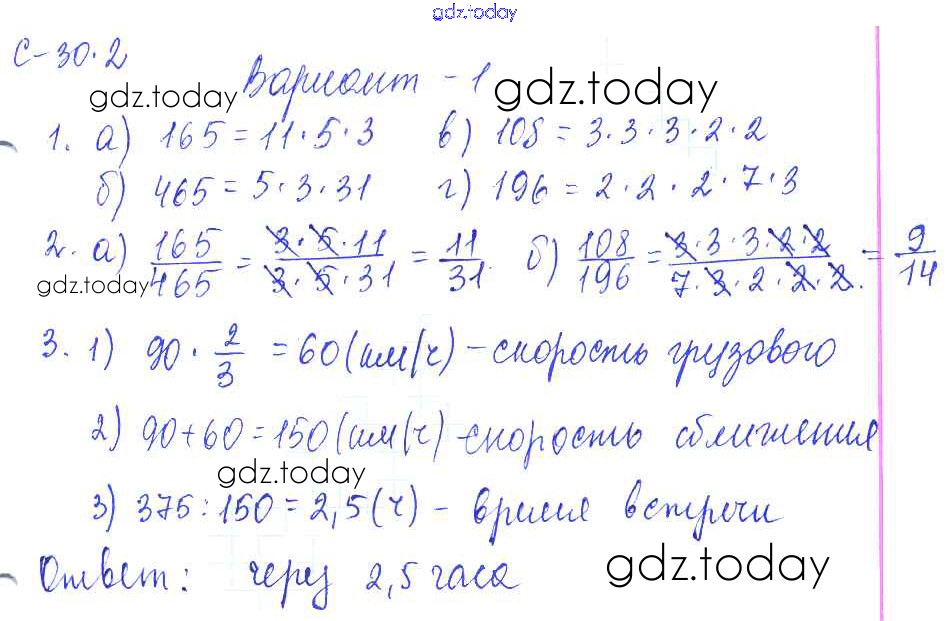 gdz.today
С-30.2
Вариант - 1
gdz.today gdz.today
1. а) 165 = 11·5·3 в) 108 = 3·3·3·2·2
б) 465 = 5·3·31 г) 196 = 2·2·2·7·3
2. а) 165/465 = 3·5·11/3·5·31 = 11/31. б) 108/196 = 3·3·3·2·2/7·3·2·2·2. = 9/14
gdz.today
3. 1) 90 · 2/3 = 60 (км/ч) - скорость грузового
2) 90+60 = 150 (км/ч) - скорость сближения
gdz.today
3) 375 : 150 = 2,5 (ч) - время встречи
Ответ: через 2,5 часа
gdz.today